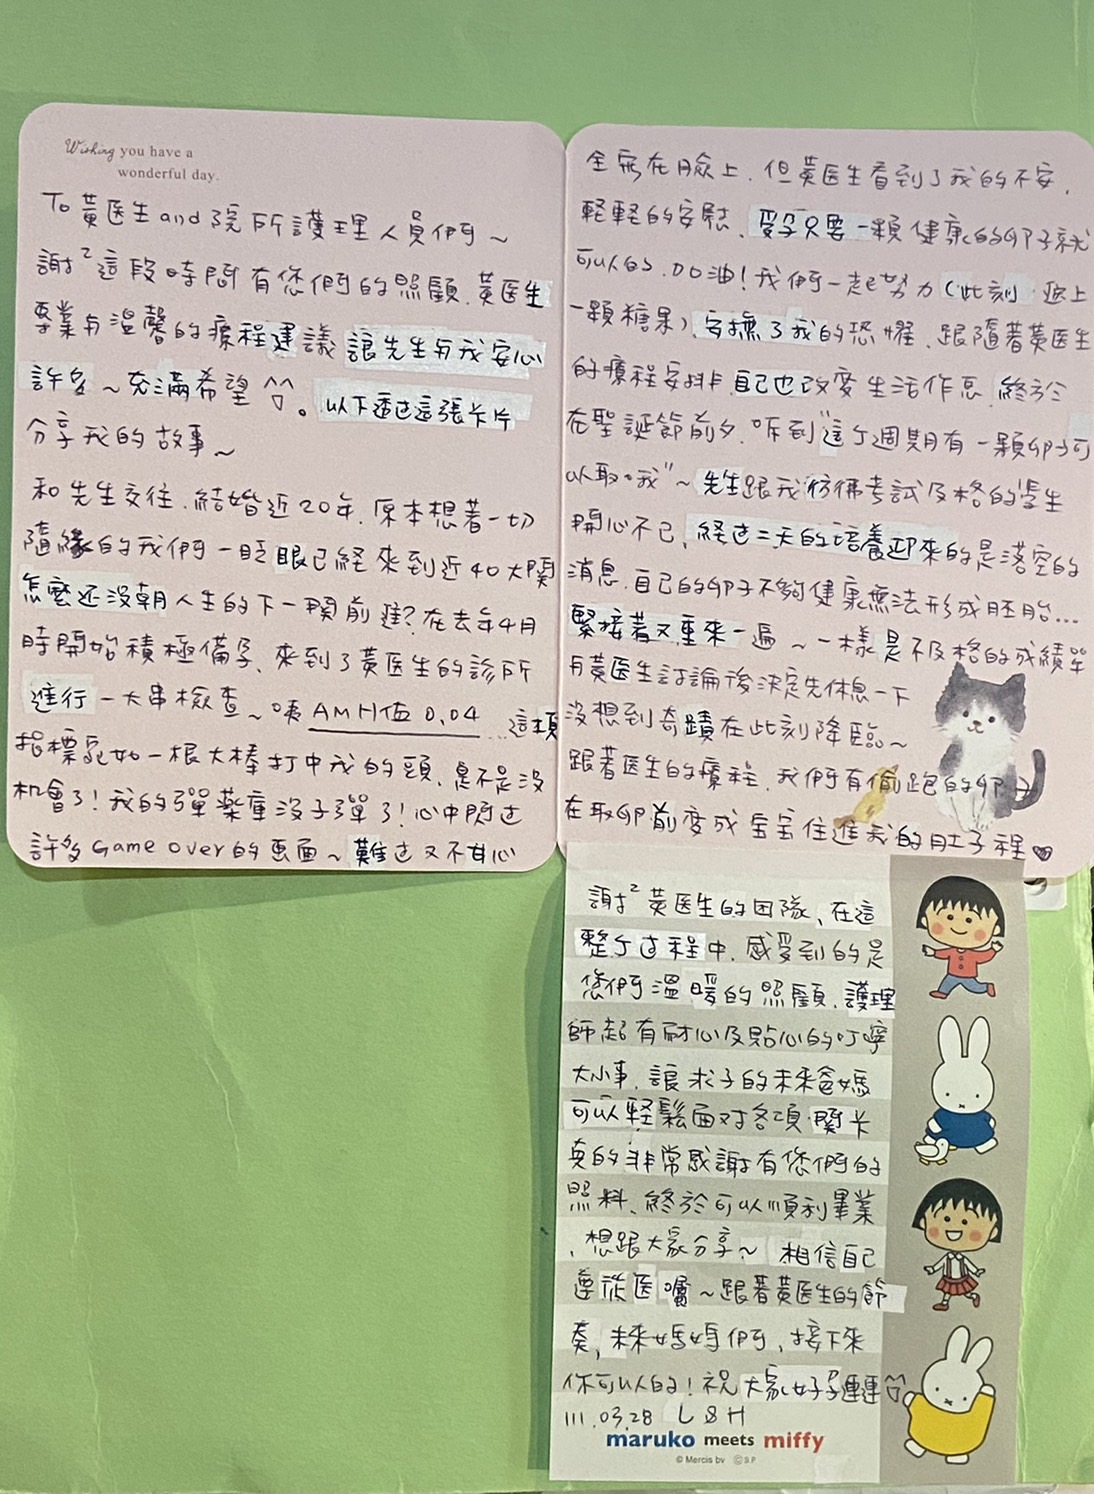 Wishing you have a
wonderful day.
To 黃医生and院所護理人員們~
謝²這段時間有您們的照顧.黃医生
專業与溫馨的療程建議 讓先生与我安心
許多~充滿希望^^。以下透过這張卡片
分享我的故事~
和先生交往.結婚近20年.原本想著一切
隨緣的我們一眨眼已經來到近40大關
怎麼还沒朝人生的下一關前進?在去年4月
時開始積極備孕、來到了黃医生的診所
進行一大串檢查~咦AMH值0.04...這項
指標宛如一根大棒打中我的頭、是不是没
机會了!我的彈藥庫沒子彈了!心中閃过
許多Game over的画面~難过又不甘心
全寫在臉上.但黃医生看到了我的不安.
輕輕的安慰、受孕只要一顆健康的卵子就
可以的.加油!我們一起努力(此刻 遞上
一顆糖果)安撫了我的恐懼.跟隨著黃医生
的療程安排自己也改变生活作息.終於
在聖誕節前夕.听到"這个週期有一顆卵子可
以取哦"~先生跟我彷彿考試及格的學生
開心不已、経过三天的培養迎來的是落空的
消息.自己的卵子不夠健康無法形成胚胎...
緊接著又重來一遍~一樣是不及格的成績單
与黃医生討論後決定先休息一下
沒想到奇蹟在此刻降臨~
跟著医生的療程.我們有偷跑的卵子
在取卵前变成宝宝住進我的肚子裡♥
謝²黃医生的团隊、在這
整个过程中.感受到的是
您們溫暖的照顧.護理
師超有耐心及貼心的叮嚀
大小事.讓求子的未來爸媽
可以輕鬆面对各項關卡
真的非常感謝有您們的
照料、終於可以順利畢業
.想跟大家分享~ 相信自己
遵從医囑~跟著黃医生的節
奏,未來媽媽們.接下來
你可以的!祝大家好孕連連^^
111.03.28 LSH
maruko meets miffy
© Mercis bv ©S.P